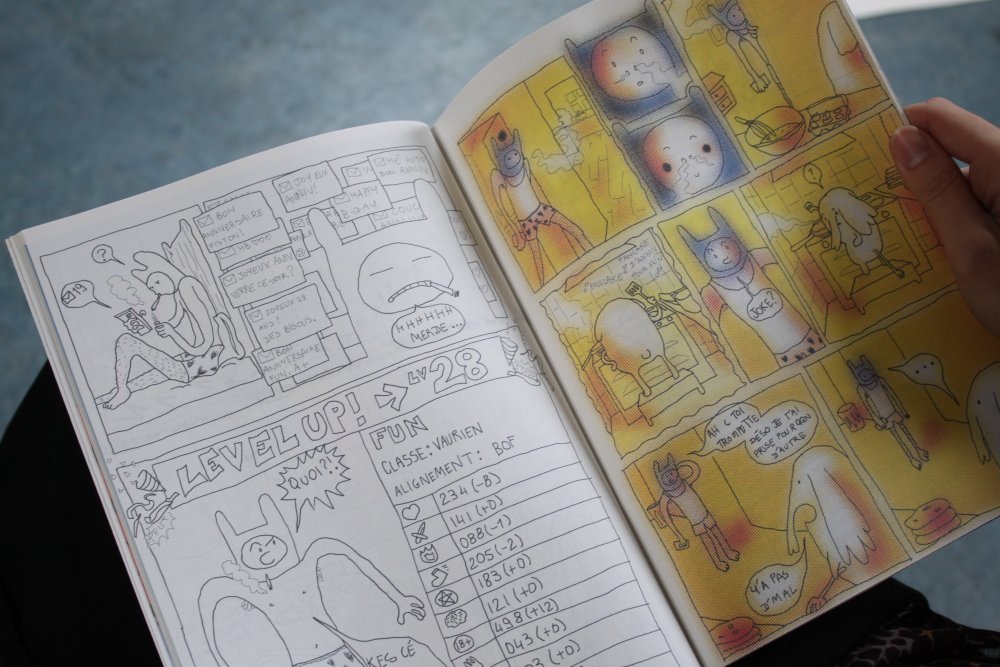 ?
19
BON
ANNIVERSAIRE
FISTON!
JOYEUX
ANNIV!
HAPPY
B-DAY
BON ANNIV
JOYEUX ANNIV
VERRE CE SOIR?
JOYEUX 28
ANS!
DES BISOUS.
BON
ANNIVERSAIRE
FUN. A+
HHHHHH
MERDE...
LEVEL UP! → LV 28
QUOI?!
FUN
CLASSE: VAURIEN
ALIGNEMENT: BOF
234 (-8)
141 (+0)
088 (-1)
205 (-2)
183 (+0)
121 (+0)
18+ 498 (+12)
043 (+0)
KES CÉ
!
?
PANCAKE
D'ANNIV
POUR FUN
JOKE?
AH C TOI
TROMPETTE
DÉSO JE T'AI
PRISE POUR QQN
D'AUTRE
...
Y'A PAS
D'MAL